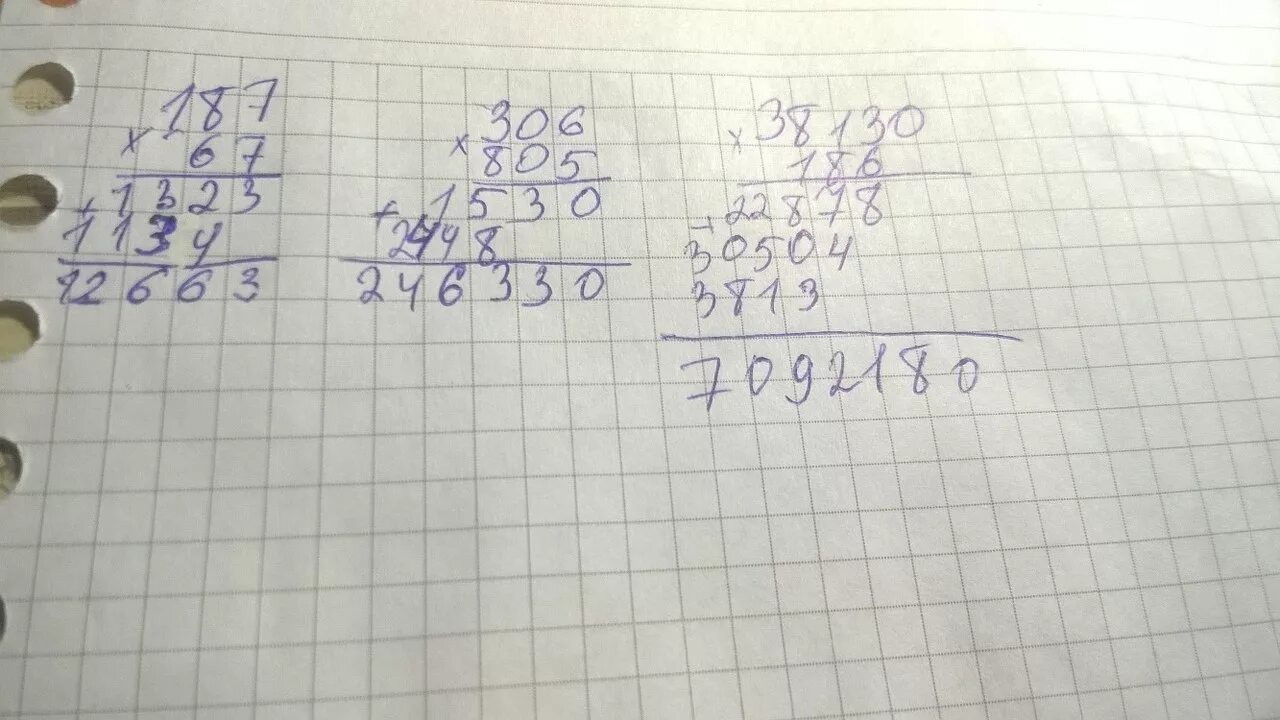 187
× 67
+ 1323
1134
12663
306
× 805
+ 1530
2448
246330
38130
× 186
+ 22878
30504
3813
7092180